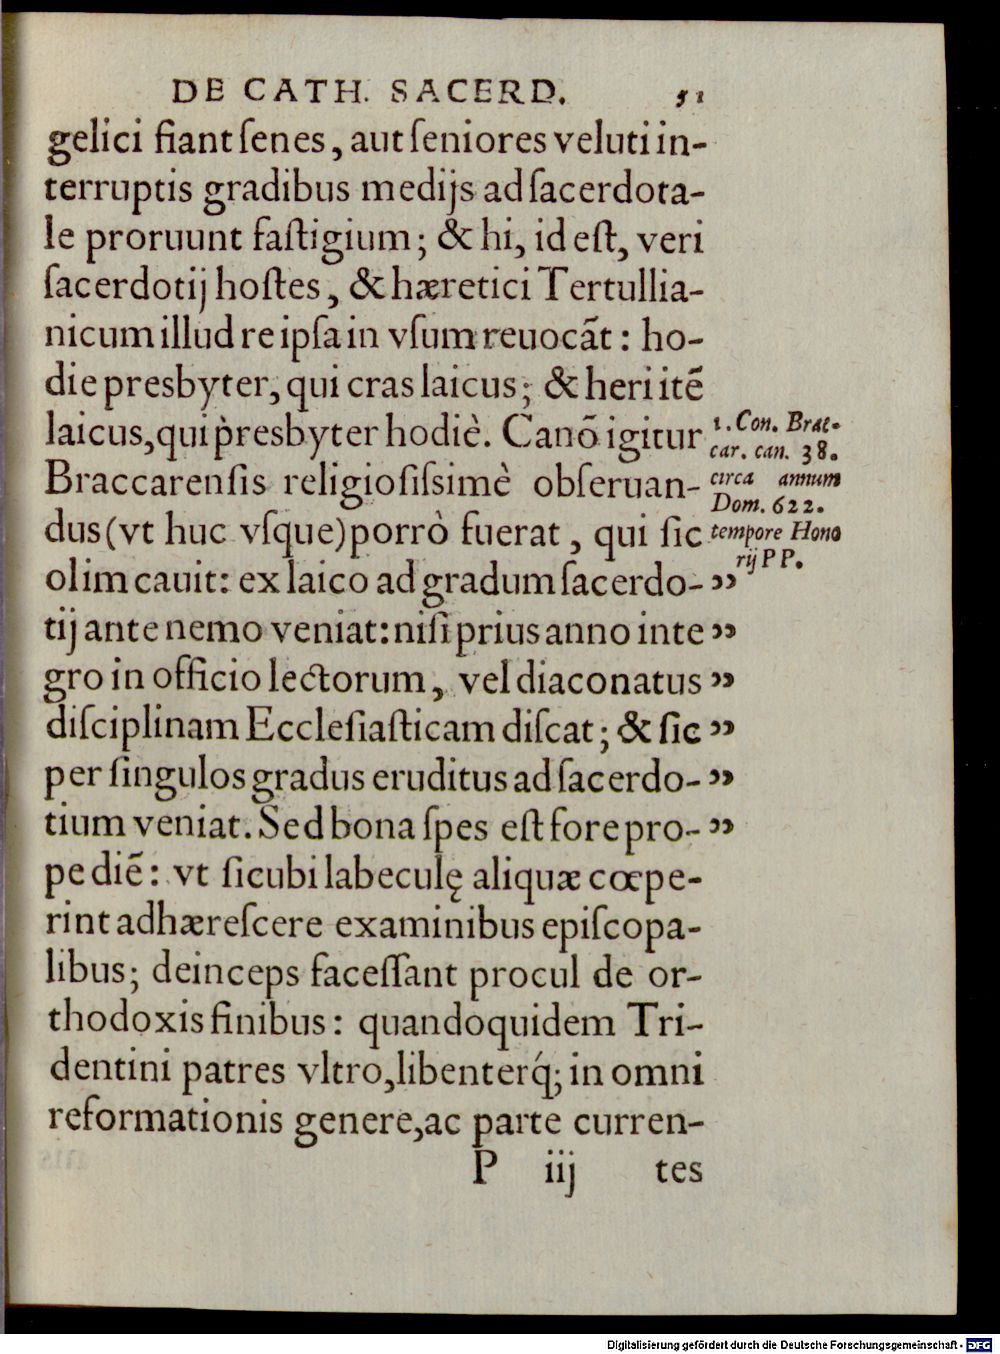 DE CATH. SACERD. 51
gelici fiant ſenes, aut ſeniores veluti in-
terruptis gradibus medijs ad ſacerdota-
le proruunt faſtigium; & hi, id eſt, veri
ſacerdotij hoſtes, & hæretici Tertullia-
nicum illud re ipſa in vſum reuocãt: ho-
die presbyter, qui cras laicus; & heri itẽ
laicus, qui presbyter hodiè. Canõ igitur
Braccarenſis religioſiſsimè obſeruan-
dus (vt huc vſque) porrò fuerat, qui ſic
olim cauit: ex laico ad gradum ſacerdo- ”
tij ante nemo veniat: niſi prius anno inte ”
gro in officio lectorum, vel diaconatus ”
diſciplinam Eccleſiaſticam diſcat; & ſic ”
per ſingulos gradus eruditus ad ſacerdo- ”
tium veniat. Sed bona ſpes eſt fore pro- ”
pe diẽ: vt ſicubi labeculę aliquæ cœpe-
rint adhæreſcere examinibus epiſcopa-
libus; deinceps faceſſant procul de or-
thodoxis finibus: quandoquidem Tri-
dentini patres vltro, libenterq́; in omni
reformationis genere, ac parte curren-
P iij tes
1. Con. Brac-
car. can. 38.
circa annum
Dom. 622.
tempore Hono
rij PP.
Digitalisierung gefördert durch die Deutsche Forschungsgemeinschaft - DFG